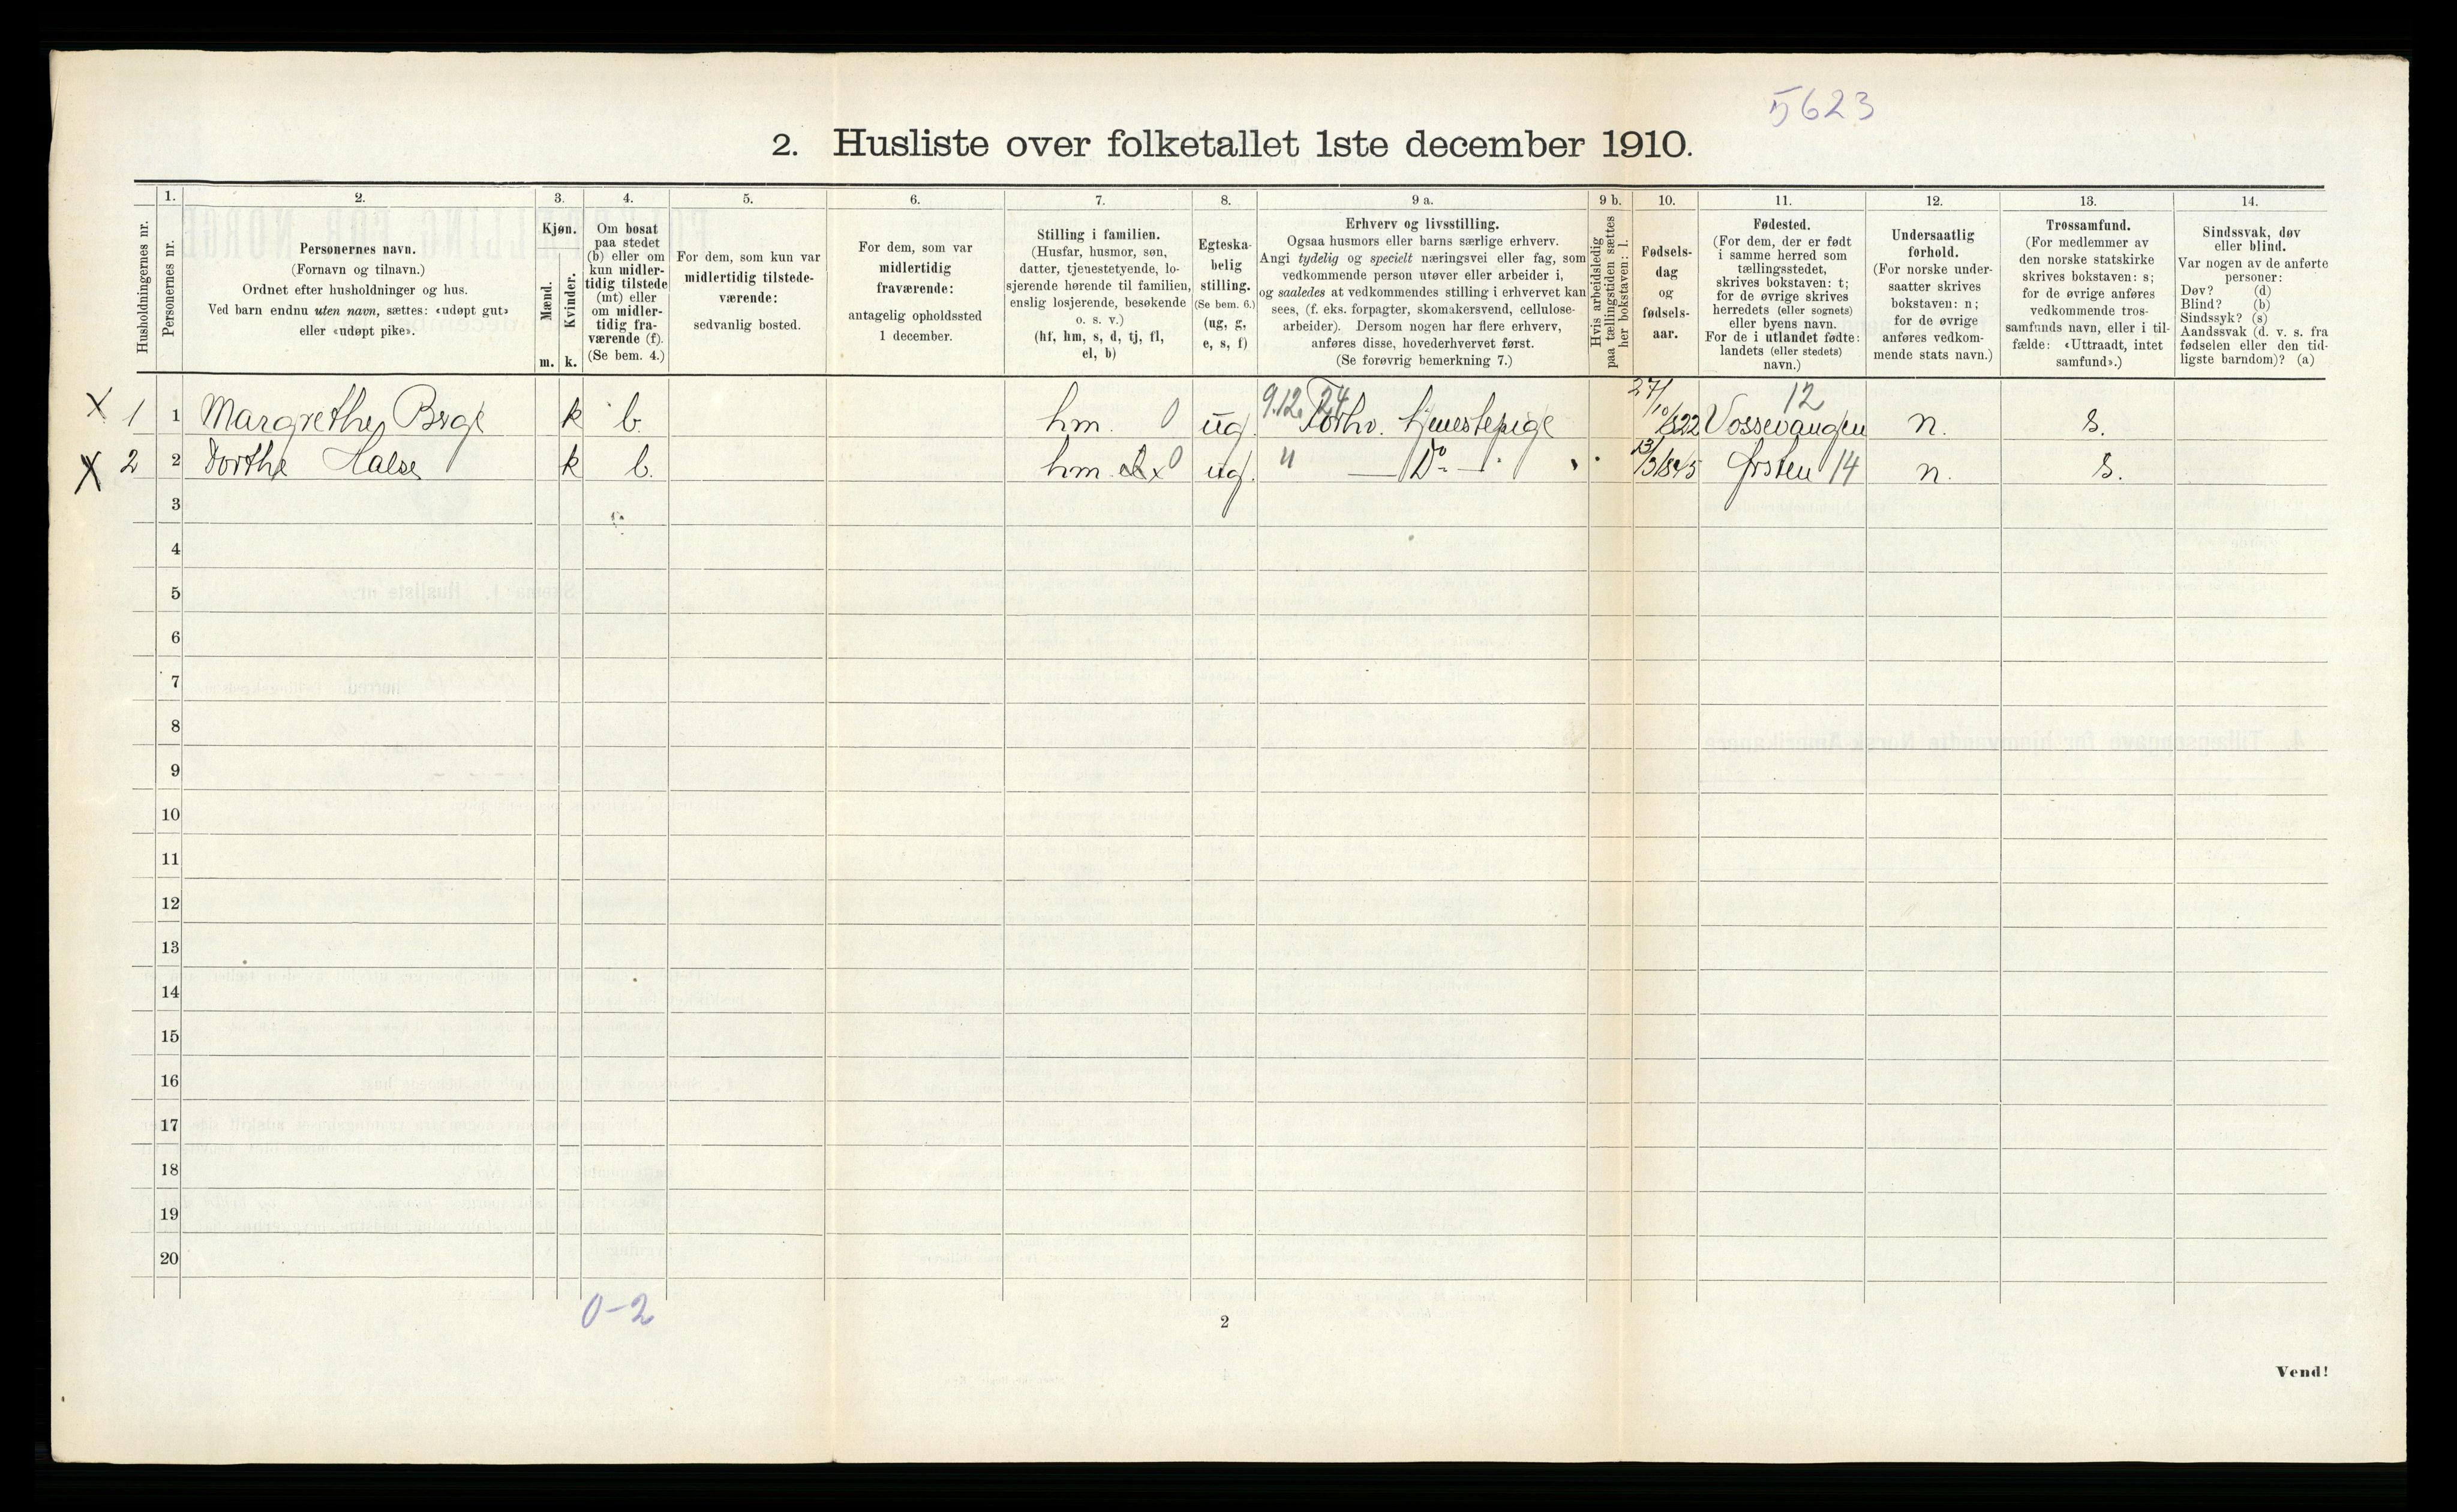 5623
2. Husliste over folketallet 1ste december 1910.
Husholdningernes nr.
1.
Personernes nr.
2.
Personernes navn.
(Fornavn og tilnavn.)
Ordnet efter husholdninger og hus.
Ved barn endnu uten navn, sættes: «udøpt gut»
eller «udøpt pike».
3.
Kjøn.
Mænd.
Kvinder.
m. k.
4.
Om bosat
paa stedet
(b) eller om
kun midler-
tidig tilstede
(mt) eller
om midler-
tidig fra-
værende (f).
(Se bem. 4.)
5.
For dem, som kun var
midlertidig tilstede-
værende:
sedvanlig bosted.
6.
For dem, som var
midlertidig
fraværende:
antagelig opholdssted
1 december.
7.
Stilling i familien.
(Husfar, husmor, søn,
datter, tjenestetyende, lo-
sjerende hørende til familien,
enslig losjerende, besøkende
o. s. v.)
(hf, hm, s, d, tj, fl,
el, b)
8.
Egteska-
belig
stilling.
(Se bem. 6.)
(ug, g,
e, s, f)
9 a.
Erhverv og livsstilling.
Ogsaa husmors eller barns særlige erhverv.
Angi tydelig og specielt næringsvei eller fag, som
vedkommende person utøver eller arbeider i,
og saaledes at vedkommendes stilling i erhvervet kan
sees, (f. eks. forpagter, skomakersvend, cellulose-
arbeider). Dersom nogen har flere erhverv,
anføres disse, hovederhvervet først.
(Se forøvrig bemerkning 7.)
9 b.
Hvis arbeidsledig
paa tællingstiden sættes
her bokstaven: l.
10.
Fødsels-
dag
og
fødsels-
aar.
11.
Fødested.
(For dem, der er født
i samme herred som
tællingsstedet,
skrives bokstaven: t;
for de øvrige skrives
herredets (eller sognets)
eller byens navn.
For de i utlandet fødte:
landets (eller stedets)
navn.)
12.
Undersaatlig
forhold.
(For norske under-
saatter skrives
bokstaven: n;
for de øvrige
anføres vedkom-
mende stats navn.)
13.
Trossamfund.
(For medlemmer av
den norske statskirke
skrives bokstaven: s;
for de øvrige anføres
vedkommende tros-
samfunds navn, eller i til-
fælde: «Uttraadt, intet
samfund».)
14.
Sindssvak, døv
eller blind.
Var nogen av de anførte
personer:
Døv? (d)
Blind? (b)
Sindssyk? (s)
Aandssvak (d. v. s. fra
fødselen eller den tid-
ligste barndom)? (a)
X 1 1 Margrethe Berge k b. hm. 0 ug. 9.12.24 Forhv. tjenestepige 27/10 1822 Vossevangen 12 n. s.
X 2 2 Dorthe Halse k b. hm. 0 ug. " — Do — 13/3 1845 Ørsten 14 n. s.
3
4
5
6
7
8
9
10
11
12
13
14
15
16
17
18
19
20
0-2
2
Vend!